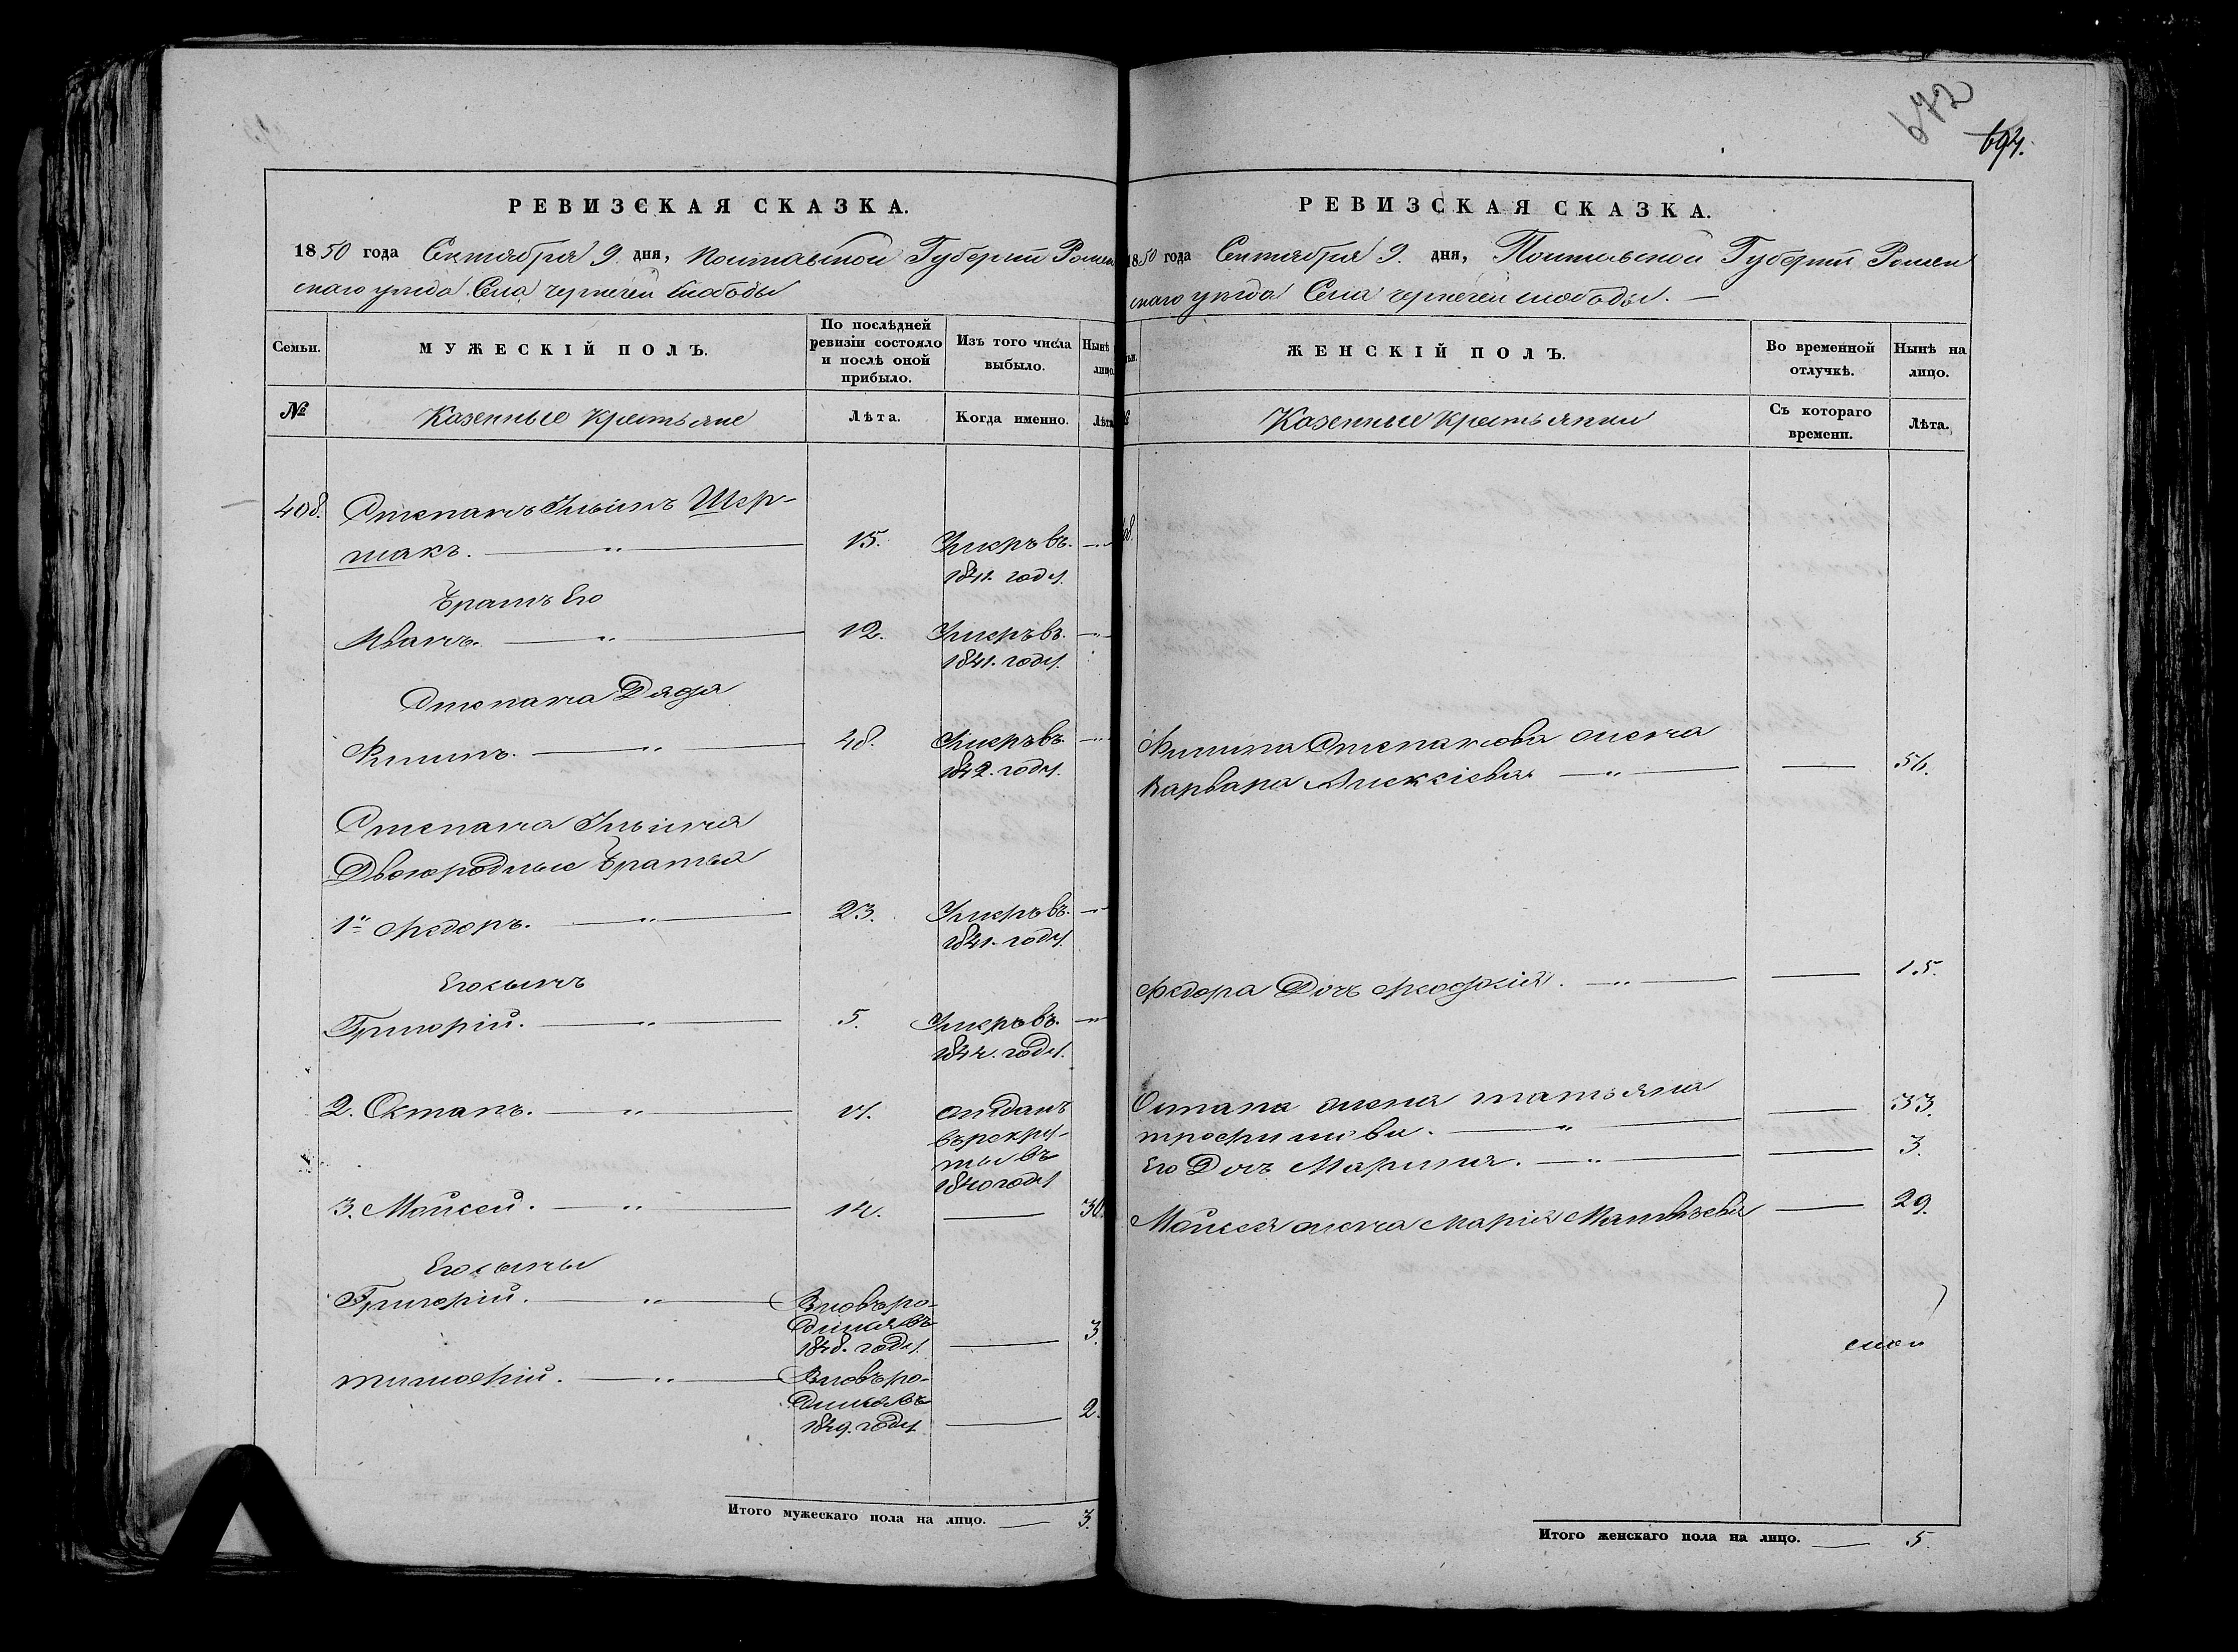 672
694.
РЕВИЗСКАЯ СКАЗКА.
1850 года Сентября 9 дня, Полтавской Губерніи Ромен
скаго уезда Села чернечей слободы
Семьи.
МУЖЕСКІЙ ПОЛЪ.
По послѣдней ревизіи состояло и послѣ оной прибыло.
Изъ того числа выбыло.
Нынѣ лицо.
№
Казенные Крестьяне
Лѣта.
Когда именно.
Лѣта
408. Степанъ Ильинъ Шер-
макъ. — " — 15. Умеръ въ
1841. году.
Братъ Его
Иванъ. — " — 12. Умеръ въ
1841. году.
Степана Дядя
Филипъ. — " — 48. Умеръ въ
1842. году.
Степана Ильина
Двоюродные Братья
1й Федоръ. — " — 23. Умеръ въ
1841. году.
Его сынъ
Григорій. — " — 5. Умеръ въ
году.
2. Остапъ. — " — отданъ
въ рекру-
ты въ
1840 году
3. Мойсей. — " — 30.
Его сыны
Григорій. — " — Вновь ро-
дился въ
1848. году. — 3
тимофій. — " — Вновь ро-
дился въ
1849. году — 2.
Итого мужескаго пола на лицо. — 3.
РЕВИЗСКАЯ СКАЗКА.
1850 года Сентября 9. дня, Полтавской Губерніи Ромен
скаго уезда Села чернечей слободы. —
ЖЕНСКІЙ ПОЛЪ.
Во временной отлучкѣ.
Нынѣ на лицо.
Казенные Крестьянки
Съ котораго времени.
Лѣта.
Филипа Степанова жена
Варвара Алексіева — " — — 56.
Федора Дочь Феодосія. — " — — 15.
Остапа жена татьяна
трофимова. — " — — 33.
Его Дочь Марина. — " — — 3.
Мойсея жена Марія Матвѣева — 29.
Итого женскаго пола на лицо. — 5.